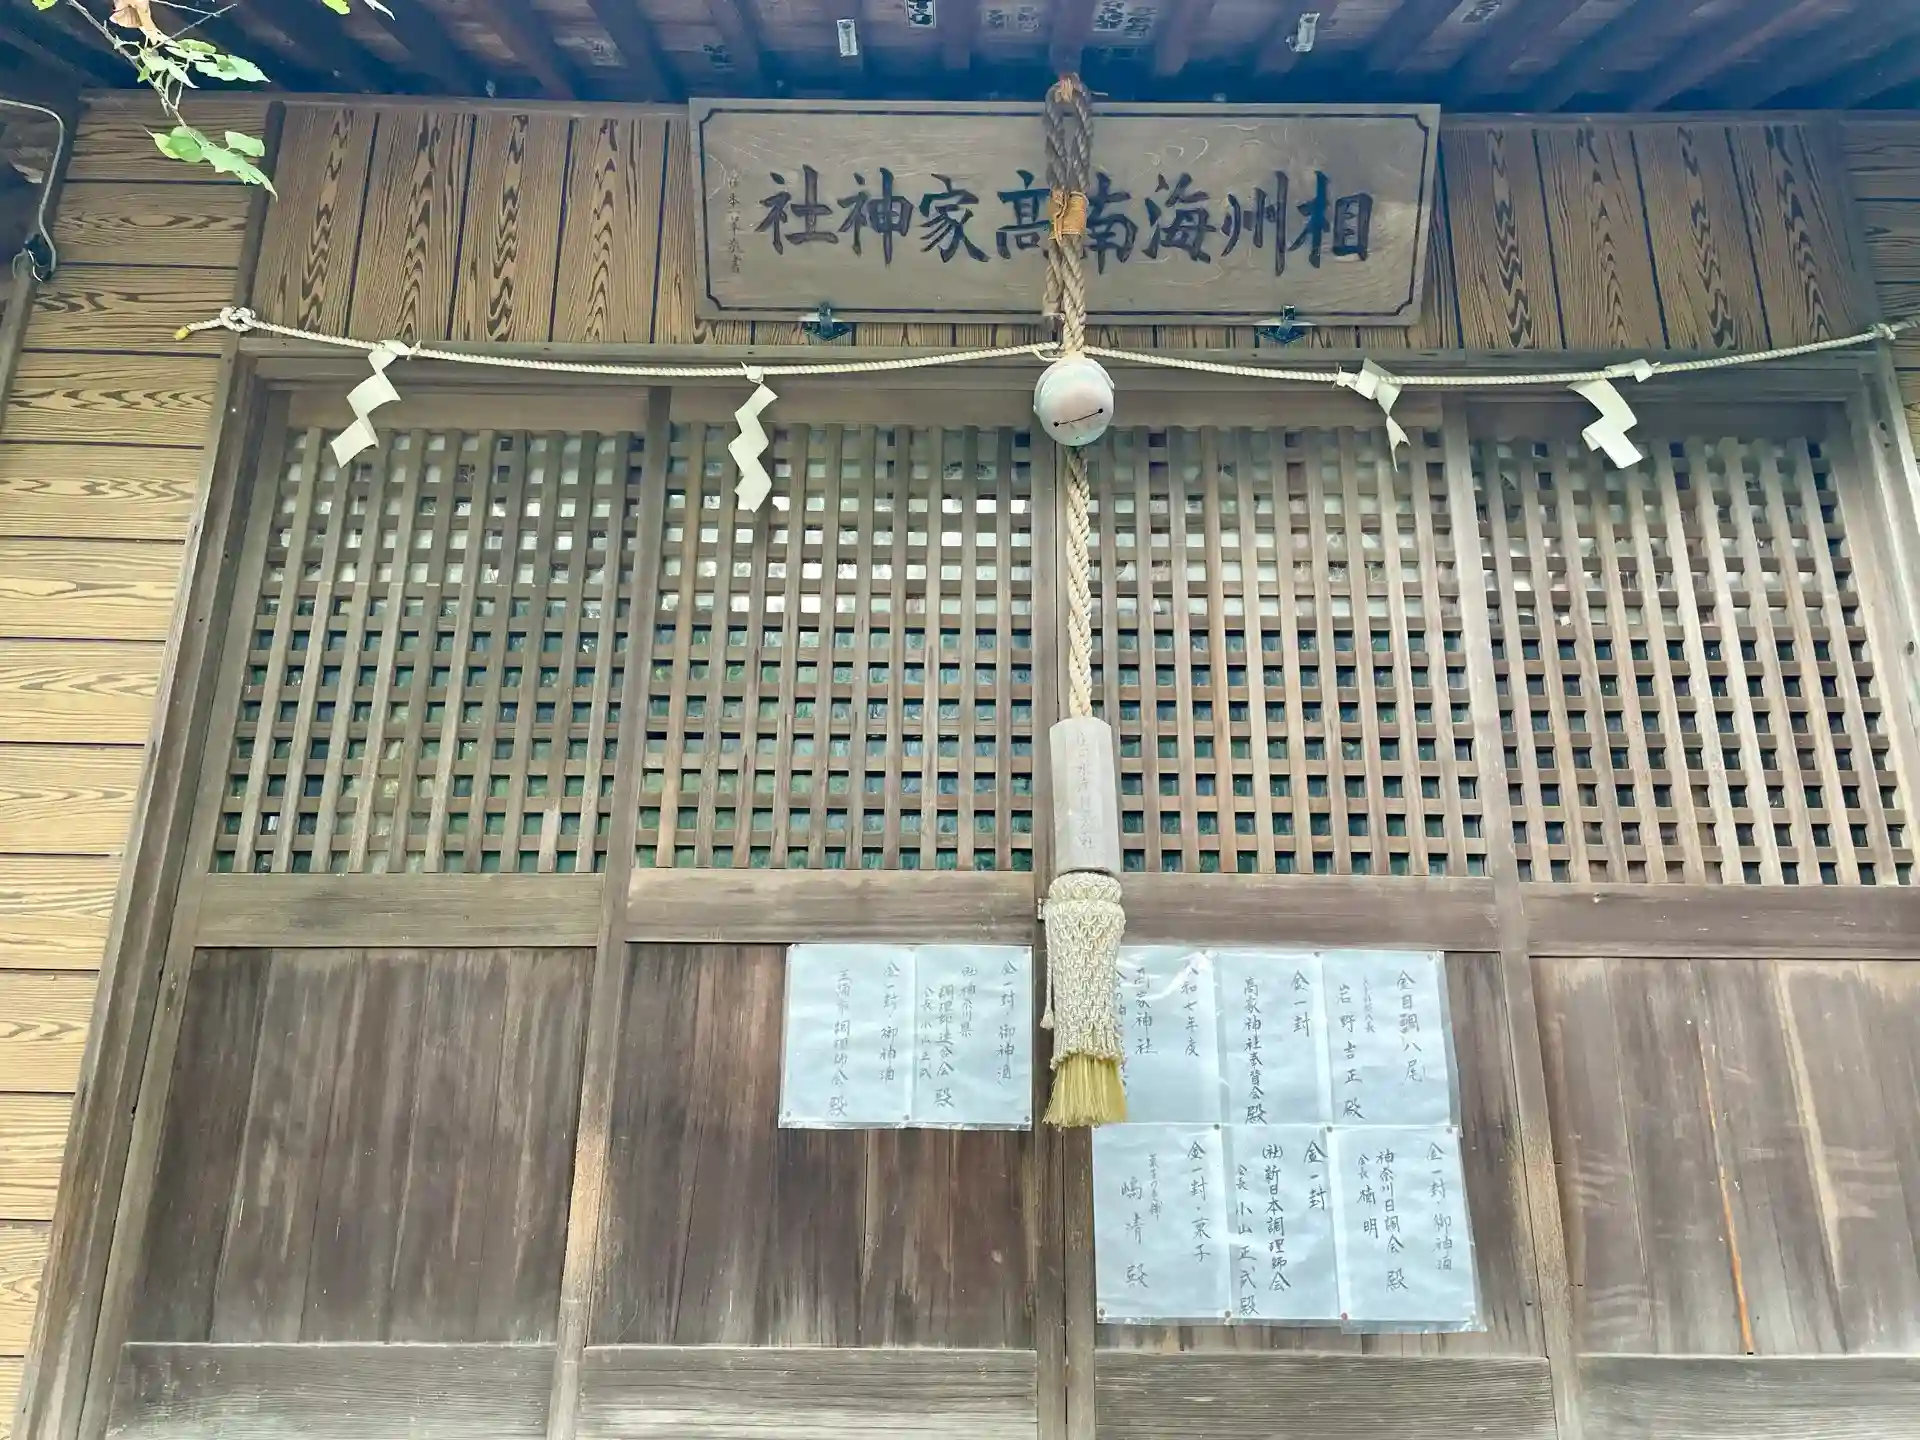 相州海南高家神社
金目鯛八尾
岩野吉正殿
金一封
高家神社奉賛会殿
令和七年度
高家神社
金一封・御神酒
神奈川日調会
会長 楠明殿
金一封
(社)新日本調理師会
会長 小山正武殿
金一封・菓子
嶋清殿
金一封・御神酒
(社)神奈川県
調理師連合会
会長 小山正武殿
金一封・御神酒
三浦市調理師会殿